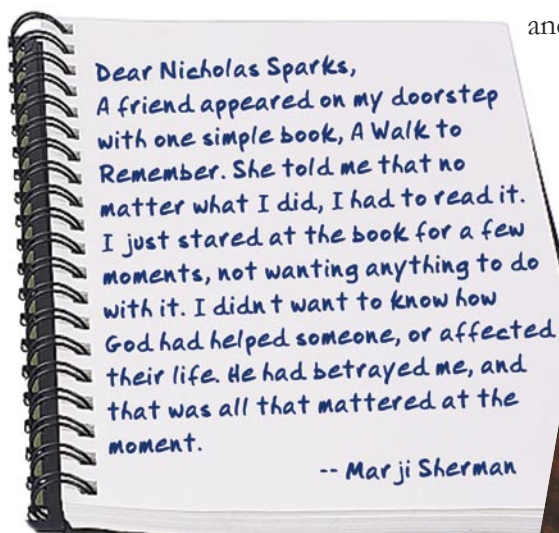 and
Dear Nicholas Sparks,
A friend appeared on my doorstep
with one simple book, A Walk to
Remember. She told me that no
matter what I did, I had to read it.
I just stared at the book for a few
moments, not wanting anything to do
with it. I didn t want to know how
God had helped someone, or affected
their life. He had betrayed me, and
that was all that mattered at the
moment.
-- Marji Sherman